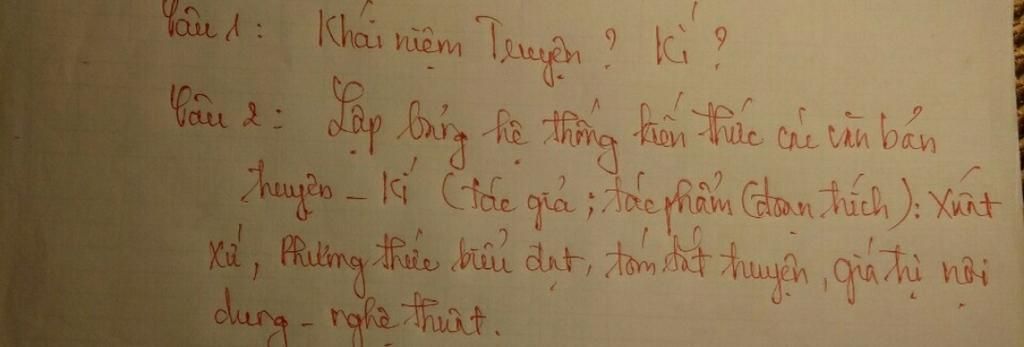 Câu 1: Khái niệm Truyện? Kí?
Câu 2: Lập bảng hệ thống kiến thức các văn bản
truyện - Kí (tác giả; tác phẩm (đoạn trích): xuất
xứ, Phương thức biểu đạt, tóm tắt truyện, giá trị nội
dung - nghệ thuật.